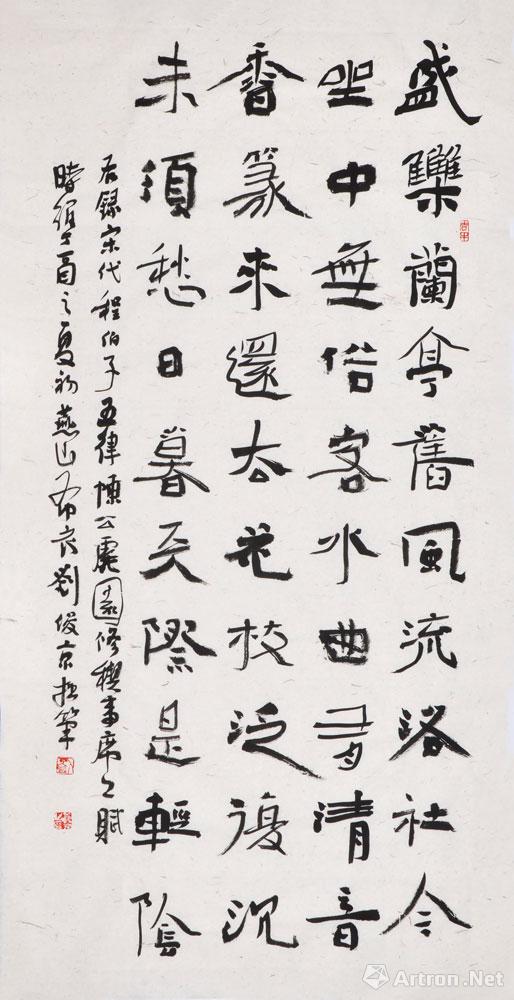 盛雧蘭亭舊風流洛社今
坐中無俗客水曲有清音
香篆來還去花枝泛復沉
未須愁日暮天際是輕陰
右錄宋代程伯子五律陳公廙園修禊事席上賦
時酉之夏初燕山布衣劉俊京筆
Artron.Net